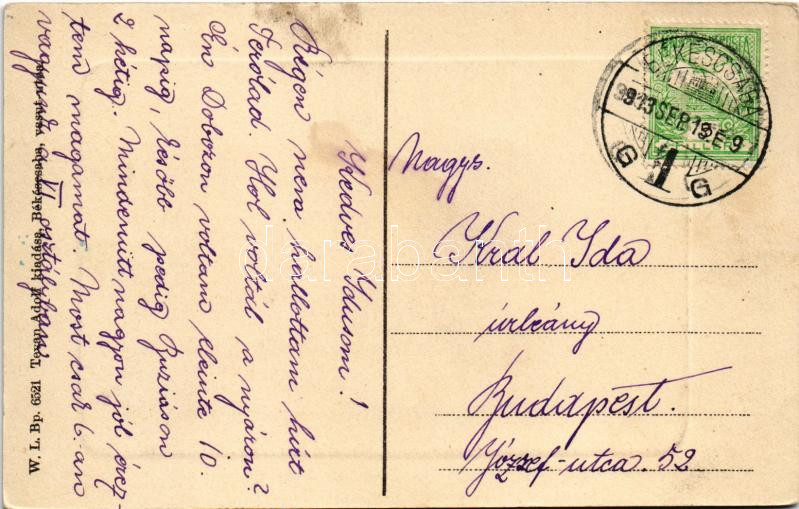 Kedves Idusom!
Régen nem hallottam hirt
Felőled. Hol voltál a nyáron?
Én Dobozon voltam eleinte 10.
napig, később pedig Buziáson
2 hétig. Mindenütt nagyon jól érez-
tem magamat. Most csak 6.-an
vagyunk a VI osztályban.
W. L. Bp. 6521 Tevan Adolf kiadása, Békéscsaba, vasut
BÉKÉSCSABA
913 SEP. 13 E-9
1
G G
Nagys.
Král Ida
úrleány
Budapest.
József-utca. 52.
darabanth